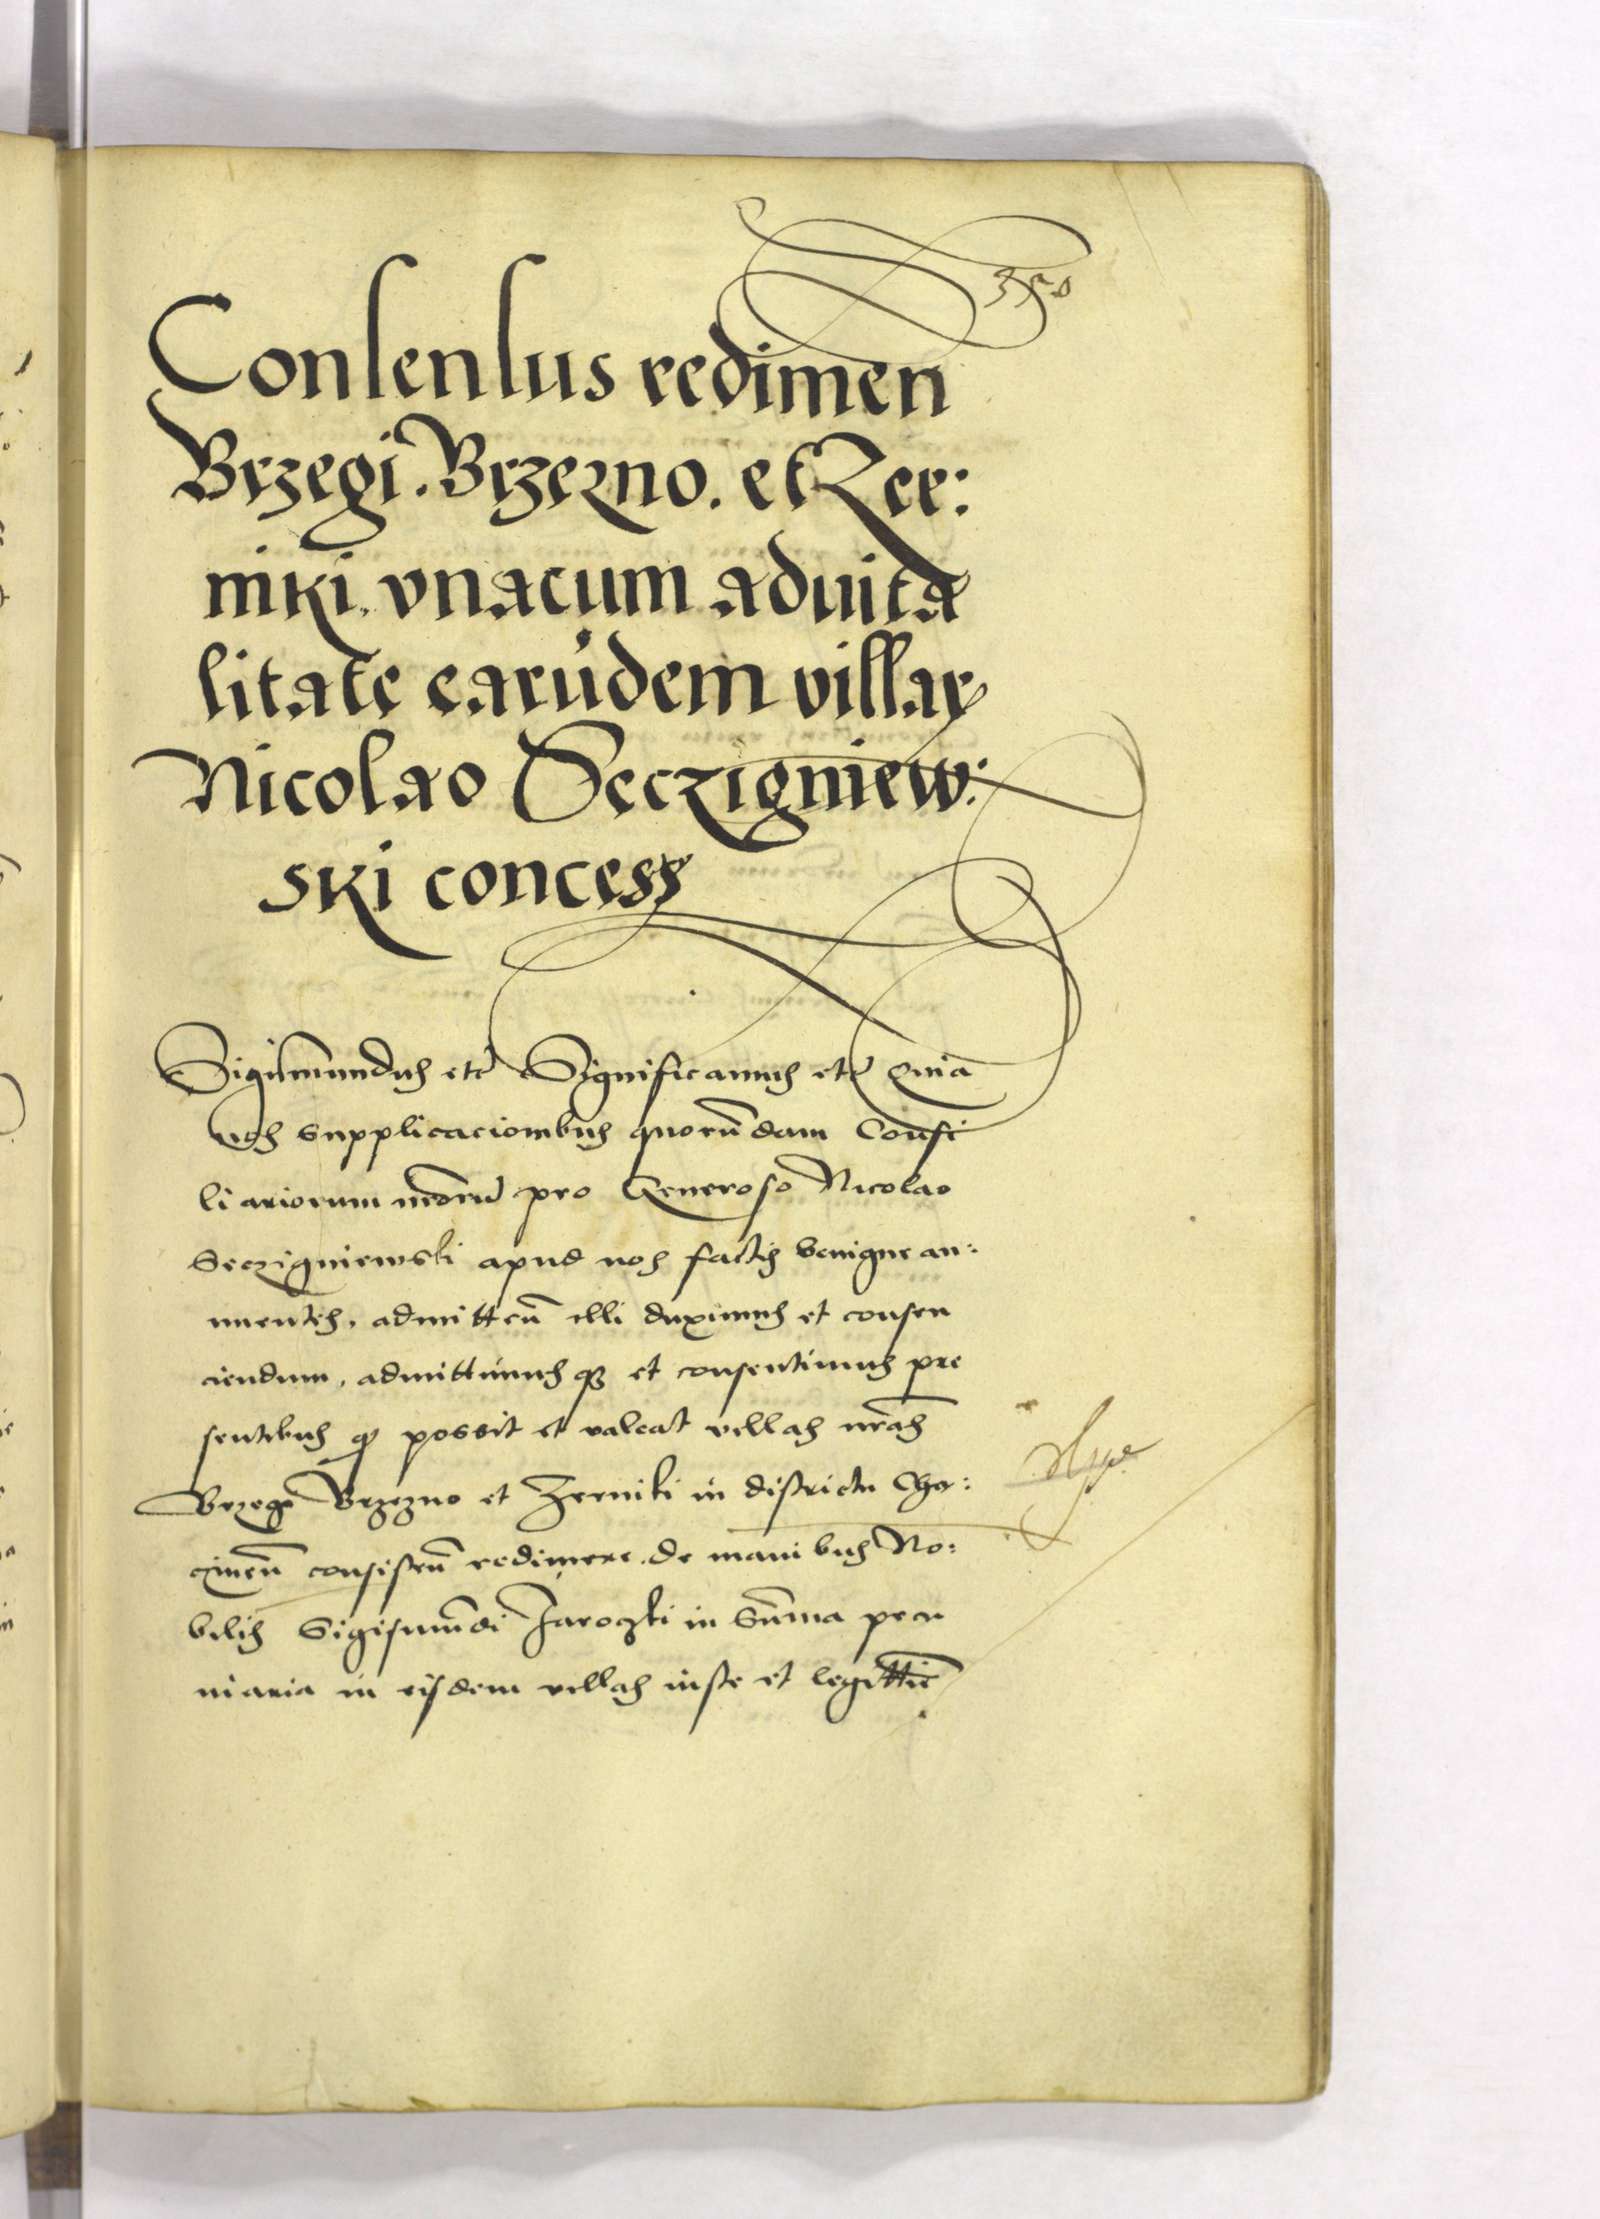 350
Consensus redimen
Brzegi. Brzezno. et Zer:
niki. vnacum advita
litate earūdem villarꝫ
Nicolao Seczigniew:
ski concess
Sigismundus etc̄ Significamus etc̄ Quia
nos supplicacionibus quorū dam Consi
li ariorum nr̄orū pro Generoso Nicolao
Seczigniewski apud nos factis benigne an:
nuentes, admitten̄ illi duximus et consen
ciendum, admittimus qꝫ et consentimus pre
sentibus qꝫ possit et valeat villas nr̄as
Brzegi Brzezno et Zerniki in districtu Cha:
czinen̄ consisten̄ redimere de manibus No:
bilis Sigismūdi Jaroczki in Sūmma pecu
niaria in eisdem villas iuste et legittīe